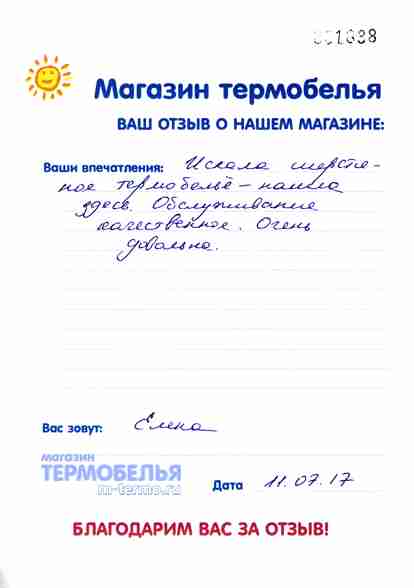 001688
Магазин термобелья
ВАШ ОТЗЫВ О НАШЕМ МАГАЗИНЕ:
Ваши впечатления: Искала шерстя-
ное термобельё – нашла
здесь. Обслуживание
качественное. Очень
довольна.
Вас зовут: Елена
магазин
ТЕРМОБЕЛЬЯ
m-termo.ru
Дата 11.07.17
БЛАГОДАРИМ ВАС ЗА ОТЗЫВ!